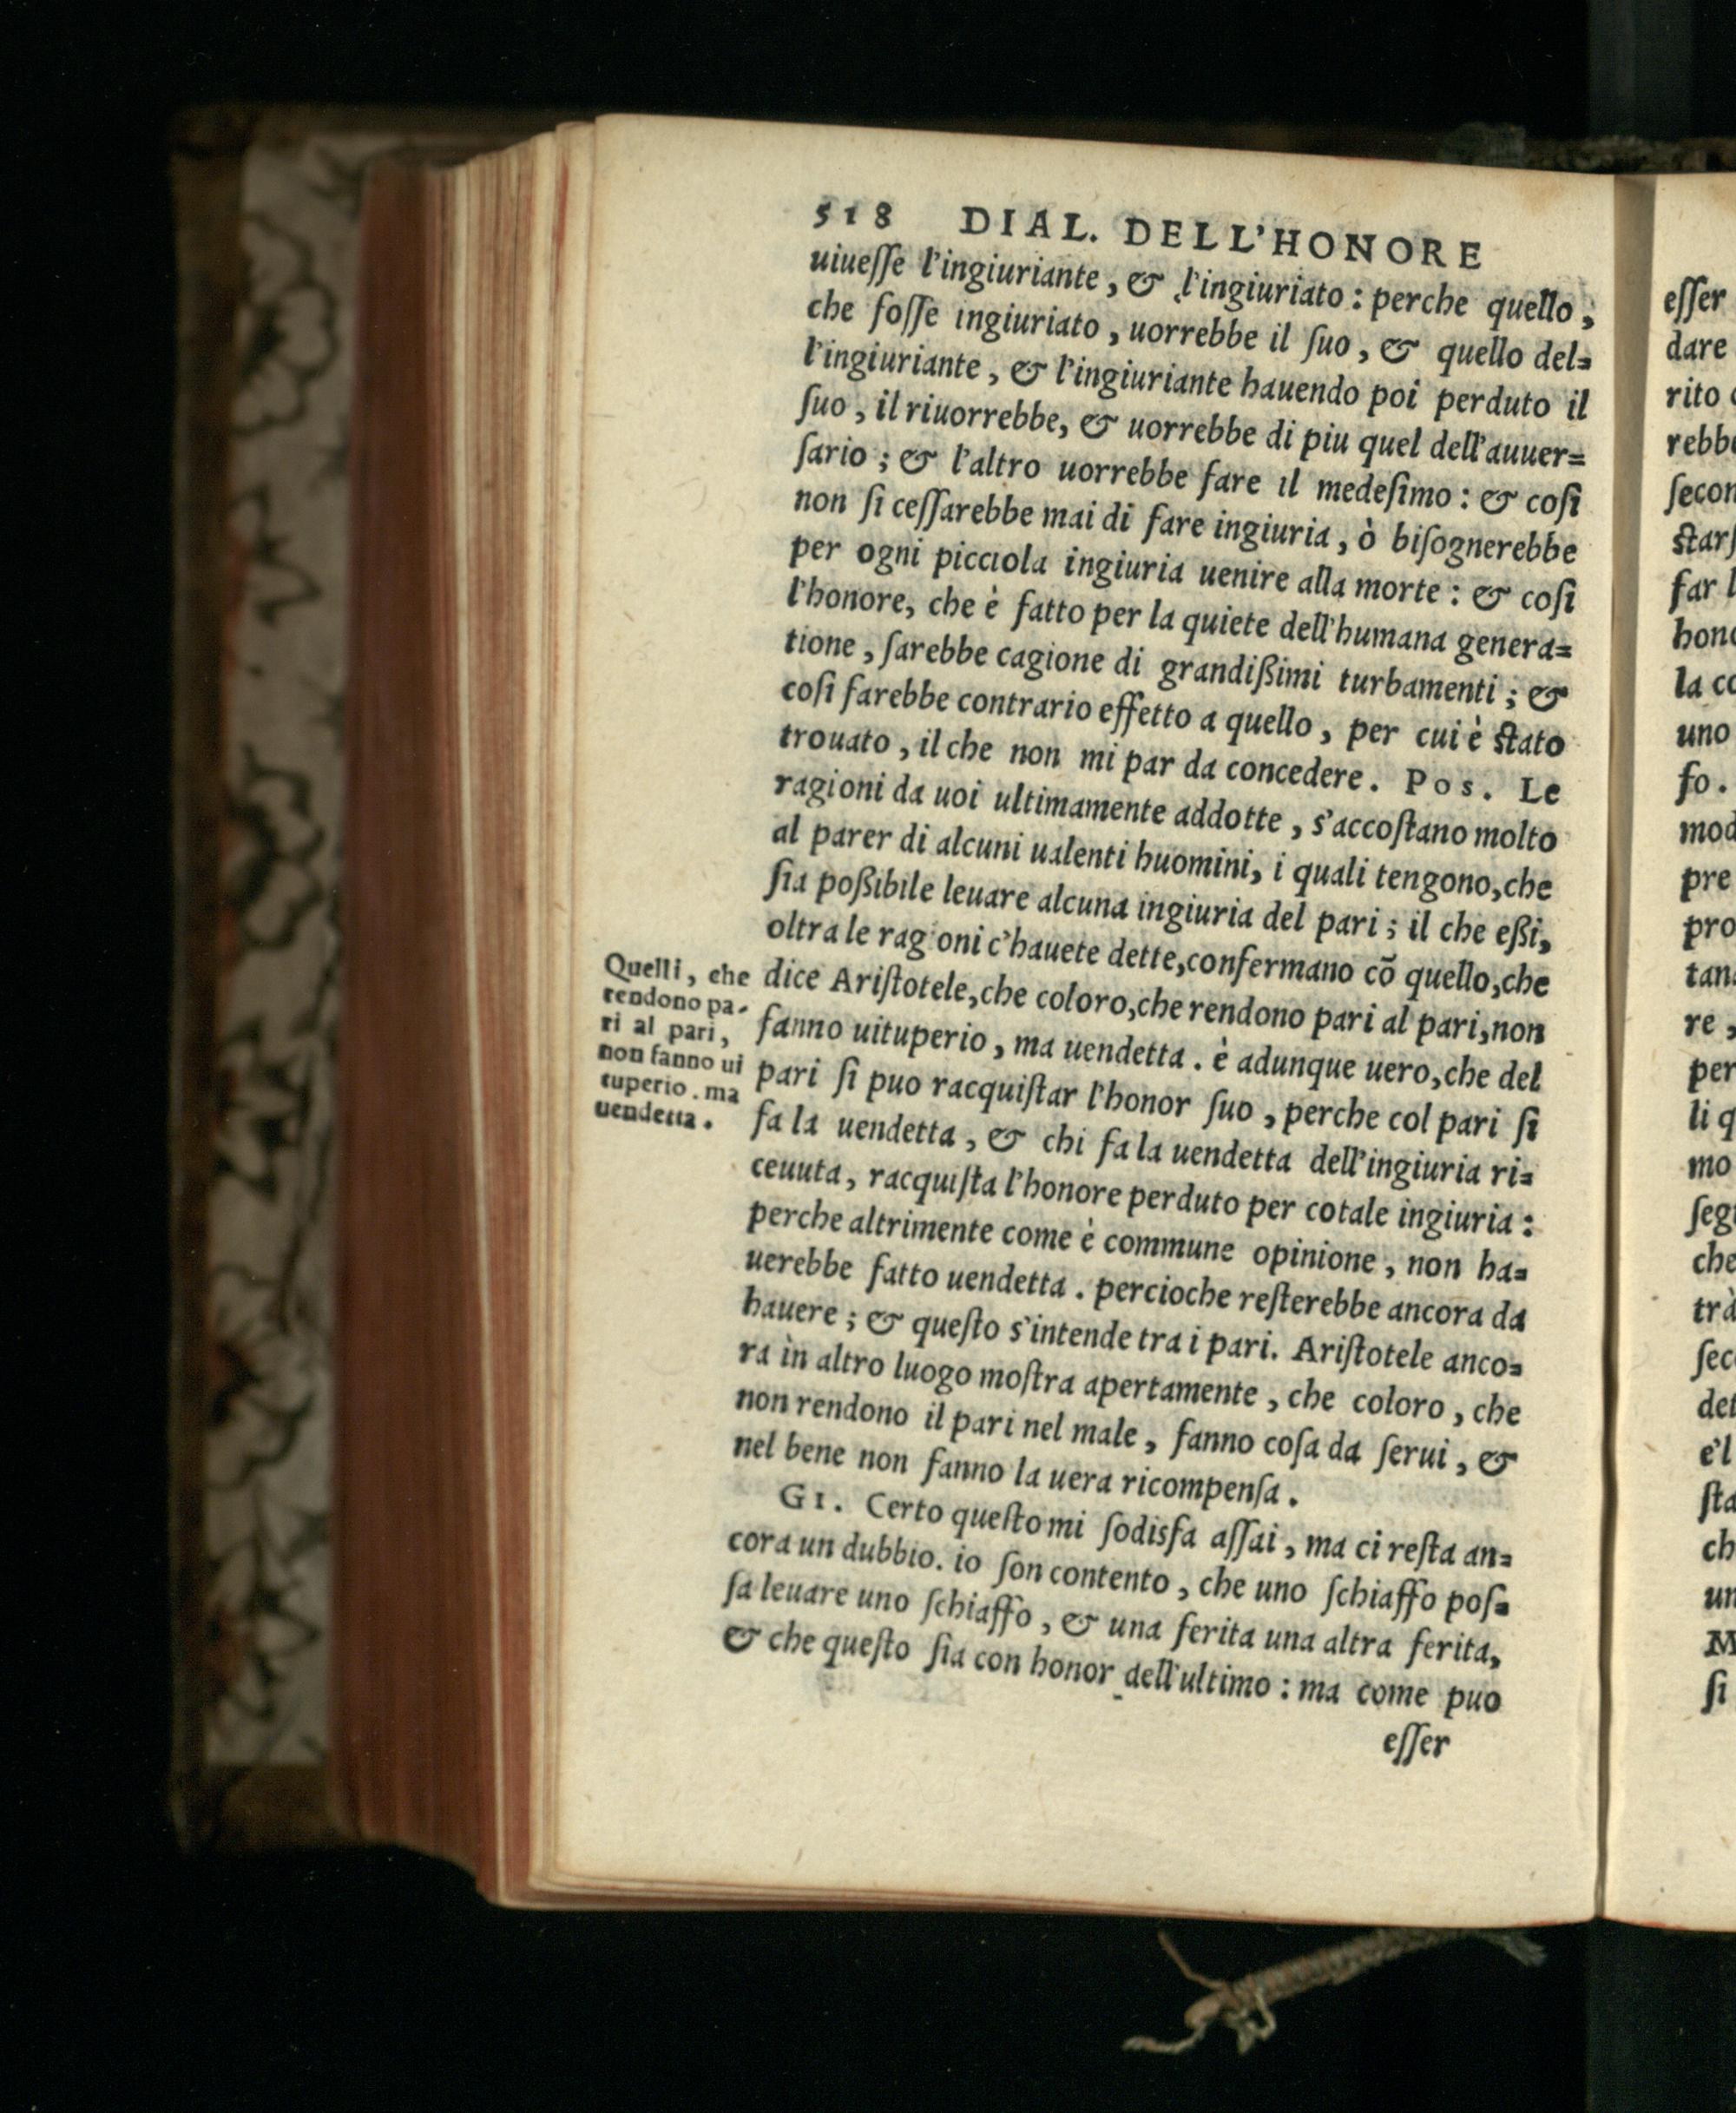 518 DIAL. DELL'HONORE
uiueſſe l'ingiuriante, & l'ingiuriato: perche quello,
che foſſe ingiuriato, uorrebbe il ſuo, & quello del=
l'ingiuriante, & l'ingiuriante hauendo poi perduto il
ſuo, il riuorrebbe, & uorrebbe di piu quel dell'auuer=
ſario; & l'altro uorrebbe fare il medeſimo: & coſi
non ſi ceſſarebbe mai di fare ingiuria, ò biſognerebbe
per ogni picciola ingiuria uenire alla morte: & coſi
l'honore, che è fatto per la quiete dell'humana genera=
tione, ſarebbe cagione di grandißimi turbamenti; &
coſi farebbe contrario effetto a quello, per cui è ſtato
trouato, il che non mi par da concedere. Pos. Le
ragioni da uoi ultimamente addotte, s'accoſtano molto
al parer di alcuni ualenti huomini, i quali tengono, che
ſia poßibile leuare alcuna ingiuria del pari; il che eßi,
oltra le ragioni c'hauete dette, confermano cō quello, che
dice Ariſtotele, che coloro, che rendono pari al pari, non
fanno uituperio, ma uendetta. è adunque uero, che del
pari ſi puo racquiſtar l'honor ſuo, perche col pari ſi
fa la uendetta, & chi fa la uendetta dell'ingiuria ri=
ceuuta, racquiſta l'honore perduto per cotale ingiuria:
perche altrimente come è commune opinione, non ha=
uerebbe fatto uendetta. percioche reſterebbe ancora da
hauere; & queſto s'intende tra i pari. Ariſtotele anco=
ra in altro luogo moſtra apertamente, che coloro, che
non rendono il pari nel male, fanno coſa da ſerui, &
nel bene non fanno la uera ricompenſa.
GI. Certo queſto mi ſodisfa aſſai, ma ci reſta an=
cora un dubbio. io ſon contento, che uno ſchiaffo poſ=
ſa leuare uno ſchiaffo, & una ferita una altra ferita,
& che queſto ſia con honor dell'ultimo: ma come puo
eſſer
Quelli, che
rendono pa-
ri al pari,
non fanno ui
tuperio. ma
uendetta.
eſſer
dare
rito
ſecon
far l
la co
uno
ſo.
mod
pre
pro
re,
per
li q
mo
ſeg
che
trà
det
e'l
ſta
ch
un
M
ſi